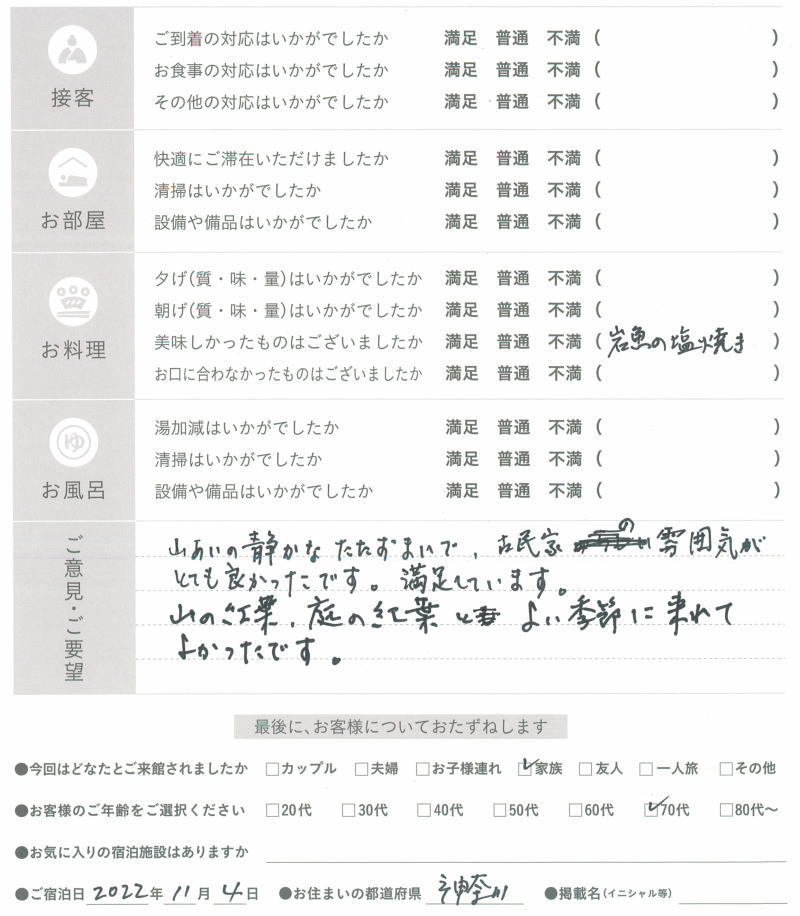 接客
ご到着の対応はいかがでしたか 満足 普通 不満 ( )
お食事の対応はいかがでしたか 満足 普通 不満 ( )
その他の対応はいかがでしたか 満足 普通 不満 ( )
お部屋
快適にご滞在いただけましたか 満足 普通 不満 ( )
清掃はいかがでしたか 満足 普通 不満 ( )
設備や備品はいかがでしたか 満足 普通 不満 ( )
お料理
夕げ(質・味・量)はいかがでしたか 満足 普通 不満 ( )
朝げ(質・味・量)はいかがでしたか 満足 普通 不満 ( )
美味しかったものはございましたか 満足 普通 不満 ( 岩魚の塩焼き )
お口に合わなかったものはございましたか 満足 普通 不満 ( )
ゆ
お風呂
湯加減はいかがでしたか 満足 普通 不満 ( )
清掃はいかがでしたか 満足 普通 不満 ( )
設備や備品はいかがでしたか 満足 普通 不満 ( )
ご意見・ご要望
山あいの静かなたたずまいで、古民家の雰囲気が
とても良かったです。満足しています。
山の紅葉、庭の紅葉と よい季節に来れて
よかったです。
最後に、お客様についておたずねします
●今回はどなたとご来館されましたか □カップル □夫婦 □お子様連れ ☑家族 □友人 □一人旅 □その他
●お客様のご年齢をご選択ください □20代 □30代 □40代 □50代 □60代 ☑70代 □80代〜
●お気に入りの宿泊施設はありますか
●ご宿泊日 2022年 11月 4日 ●お住まいの都道府県 神奈川 ●掲載名(イニシャル等)